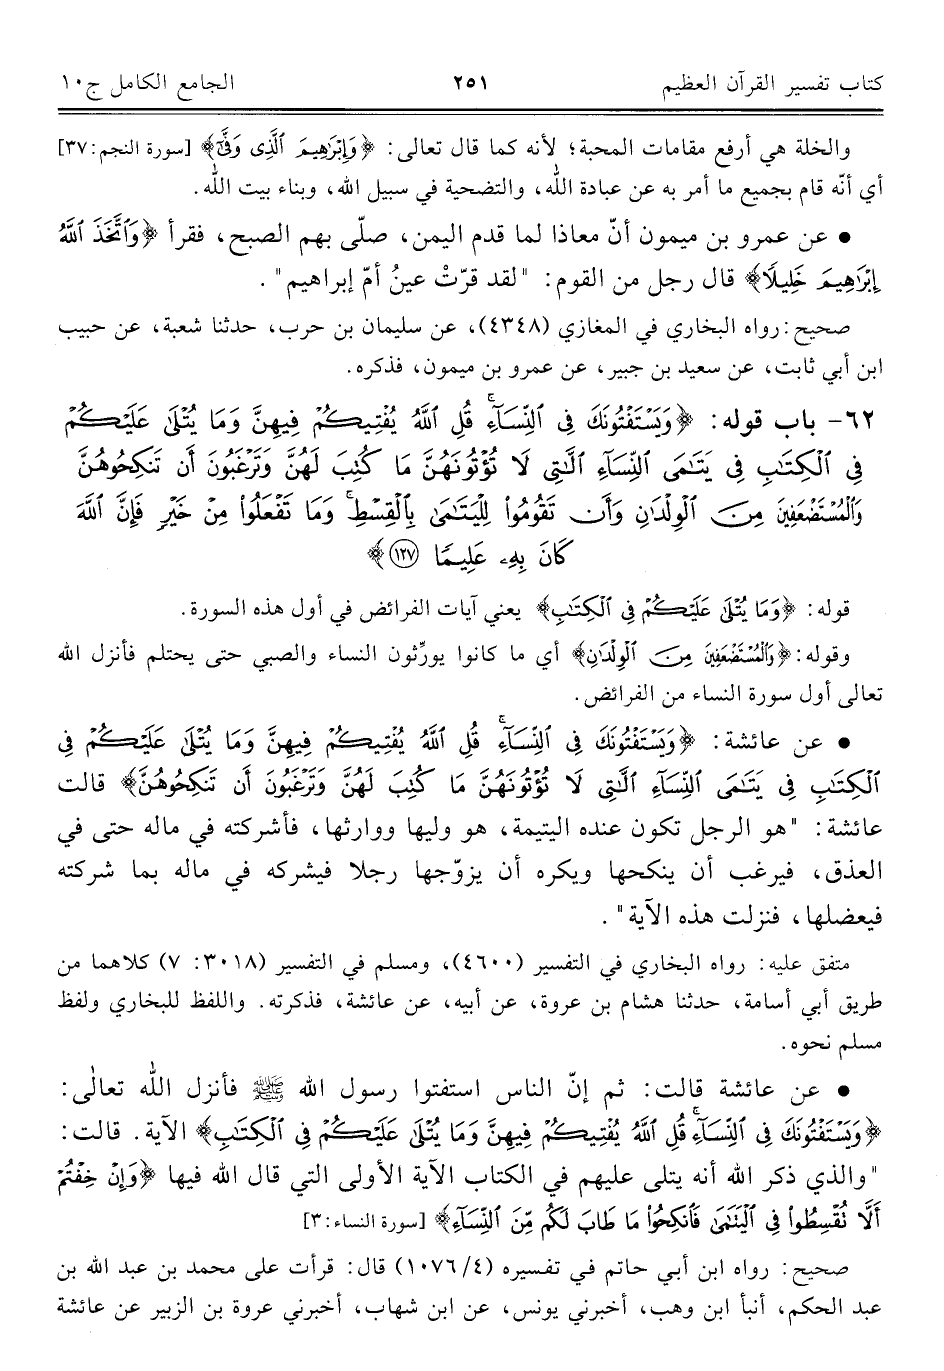 كتاب تفسير القرآن العظيم ٢٥١ الجامع الكامل ج١٠
والخلة هي أرفع مقامات المحبة؛ لأنه كما قال تعالى: ﴿وَإِبْرَٰهِيمَ ٱلَّذِى وَفَّىٰٓ﴾ [سورة النجم: ٣٧]
أي أنّه قام بجميع ما أمر به عن عبادة الله، والتضحية في سبيل الله، وبناء بيت الله.
● عن عمرو بن ميمون أنّ معاذا لما قدم اليمن، صلّى بهم الصبح، فقرأ ﴿وَٱتَّخَذَ ٱللَّهُ
إِبْرَٰهِيمَ خَلِيلًا﴾ قال رجل من القوم: "لقد قرّتْ عينُ أمّ إبراهيم".
صحيح: رواه البخاري في المغازي (٤٣٤٨)، عن سليمان بن حرب، حدثنا شعبة، عن حبيب
ابن أبي ثابت، عن سعيد بن جبير، عن عمرو بن ميمون، فذكره.
٦٢- باب قوله: ﴿وَيَسْتَفْتُونَكَ فِى ٱلنِّسَآءِ ۖ قُلِ ٱللَّهُ يُفْتِيكُمْ فِيهِنَّ وَمَا يُتْلَىٰ عَلَيْكُمْ
فِى ٱلْكِتَٰبِ فِى يَتَٰمَى ٱلنِّسَآءِ ٱلَّٰتِى لَا تُؤْتُونَهُنَّ مَا كُتِبَ لَهُنَّ وَتَرْغَبُونَ أَن تَنكِحُوهُنَّ
وَٱلْمُسْتَضْعَفِينَ مِنَ ٱلْوِلْدَٰنِ وَأَن تَقُومُوا۟ لِلْيَتَٰمَىٰ بِٱلْقِسْطِ ۚ وَمَا تَفْعَلُوا۟ مِنْ خَيْرٍ فَإِنَّ ٱللَّهَ
كَانَ بِهِۦ عَلِيمًا (١٢٧)﴾
قوله: ﴿وَمَا يُتْلَىٰ عَلَيْكُمْ فِى ٱلْكِتَٰبِ﴾ يعني آيات الفرائض في أول هذه السورة.
وقوله: ﴿وَٱلْمُسْتَضْعَفِينَ مِنَ ٱلْوِلْدَٰنِ﴾ أي ما كانوا يورِّثون النساء والصبي حتى يحتلم فأنزل الله
تعالى أول سورة النساء من الفرائض.
● عن عائشة: ﴿وَيَسْتَفْتُونَكَ فِى ٱلنِّسَآءِ ۖ قُلِ ٱللَّهُ يُفْتِيكُمْ فِيهِنَّ وَمَا يُتْلَىٰ عَلَيْكُمْ فِى
ٱلْكِتَٰبِ فِى يَتَٰمَى ٱلنِّسَآءِ ٱلَّٰتِى لَا تُؤْتُونَهُنَّ مَا كُتِبَ لَهُنَّ وَتَرْغَبُونَ أَن تَنكِحُوهُنَّ﴾ قالت
عائشة: "هو الرجل تكون عنده اليتيمة، هو وليها ووارثها، فأشركته في ماله حتى في
العذق، فيرغب أن ينكحها ويكره أن يزوّجها رجلا فيشركه في ماله بما شركته
فيعضلها، فنزلت هذه الآية".
متفق عليه: رواه البخاري في التفسير (٤٦٠٠)، ومسلم في التفسير (٣٠١٨: ٧) كلاهما من
طريق أبي أسامة، حدثنا هشام بن عروة، عن أبيه، عن عائشة، فذكرته. واللفظ للبخاري ولفظ
مسلم نحوه.
● عن عائشة قالت: ثم إنّ الناس استفتوا رسول الله ﷺ فأنزل الله تعالى:
﴿وَيَسْتَفْتُونَكَ فِى ٱلنِّسَآءِ ۖ قُلِ ٱللَّهُ يُفْتِيكُمْ فِيهِنَّ وَمَا يُتْلَىٰ عَلَيْكُمْ فِى ٱلْكِتَٰبِ﴾ الآية. قالت:
"والذي ذكر الله أنه يتلى عليهم في الكتاب الآية الأولى التي قال الله فيها ﴿وَإِنْ خِفْتُمْ
أَلَّا تُقْسِطُوا۟ فِى ٱلْيَتَٰمَىٰ فَٱنكِحُوا۟ مَا طَابَ لَكُم مِّنَ ٱلنِّسَآءِ﴾ [سورة النساء: ٣]
صحيح: رواه ابن أبي حاتم في تفسيره (٤/ ١٠٧٦) قال: قرأت على محمد بن عبد الله بن
عبد الحكم، أنبأ ابن وهب، أخبرني يونس، عن ابن شهاب، أخبرني عروة بن الزبير عن عائشة